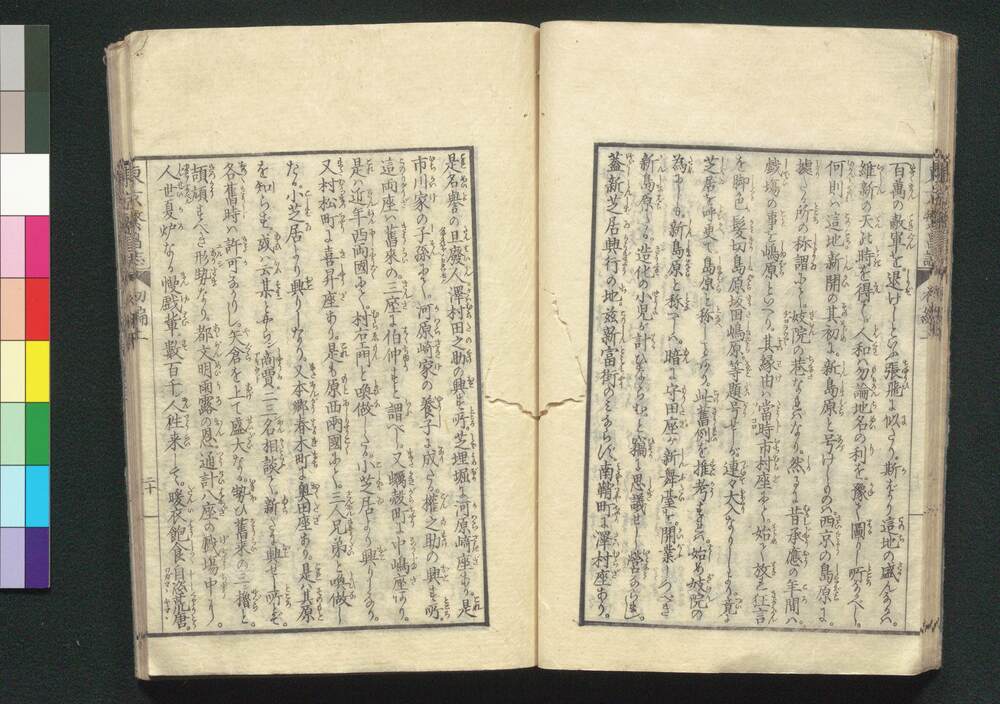 百萬の敵軍を退けしといふ張飛に似たり。斯てより這地の盛んなるハ。
維新の天此時を得て。人和ハ勿論地名の利を。豫じめ圖りし所なるべし。
何則ハ這地新開の其初に。新島原と号けしものハ西京の島原に
據たる所の称謂にて。妓院の巷なれバなり。然るに昔承應の年間ハ
戯塲の事を嶋原といへり。其縁由ハ當時市村座にて。始めて放れ狂言
を脚色。髪切島原坂田嶋原等と題号せしが。連々大入なりしより。竟に
芝居を呼更て島原と称しとかや。此舊例を推考れバ。始め妓院の
為にしが。新島原と称へしハ。暗に守田座が新舞臺を。開業しつべき
新島原にて。造化の小児が計ひならむと。窃に思議せし營ならし。
蓋新芝居興行の地。茲新富街のミならバ。南鞘町に澤村座あり。
是名譽の旦癈人。澤村田之助の興せし所。芝埋堀に河原崎座あり。是
市川家の子孫にして。河原崎家の養子に成たる。權之助の興せし所。
這兩座ハ舊來の三座に伯仲すと謂べし。又蠣殻町に中嶋座あり。
是ハ近年西兩國にて。村右エ門と喚做したる。小芝居より興りしなり。
又村松町に喜昇座あり。是も原西兩國にて。三人兄弟と喚做し
たる。小芝居より興りしなり。又本郷春木町に奥田座あり。是ハ其原
を知らず。或ハ云某と甫らう商賈二三名相談て。新たに興せし所とぞ。
各舊時ハ許可なかりし。矢倉を上て盛大なる。勢ひ舊来の三櫓と
頡頏すべき形勢なり。都文明雨露の恩。通計八座の戯塲中より。
人世夏炉なる慢戯輩。數百千人往來して。暖衣飽食自恣荒唐。
東京繁昌誌
初編
二十